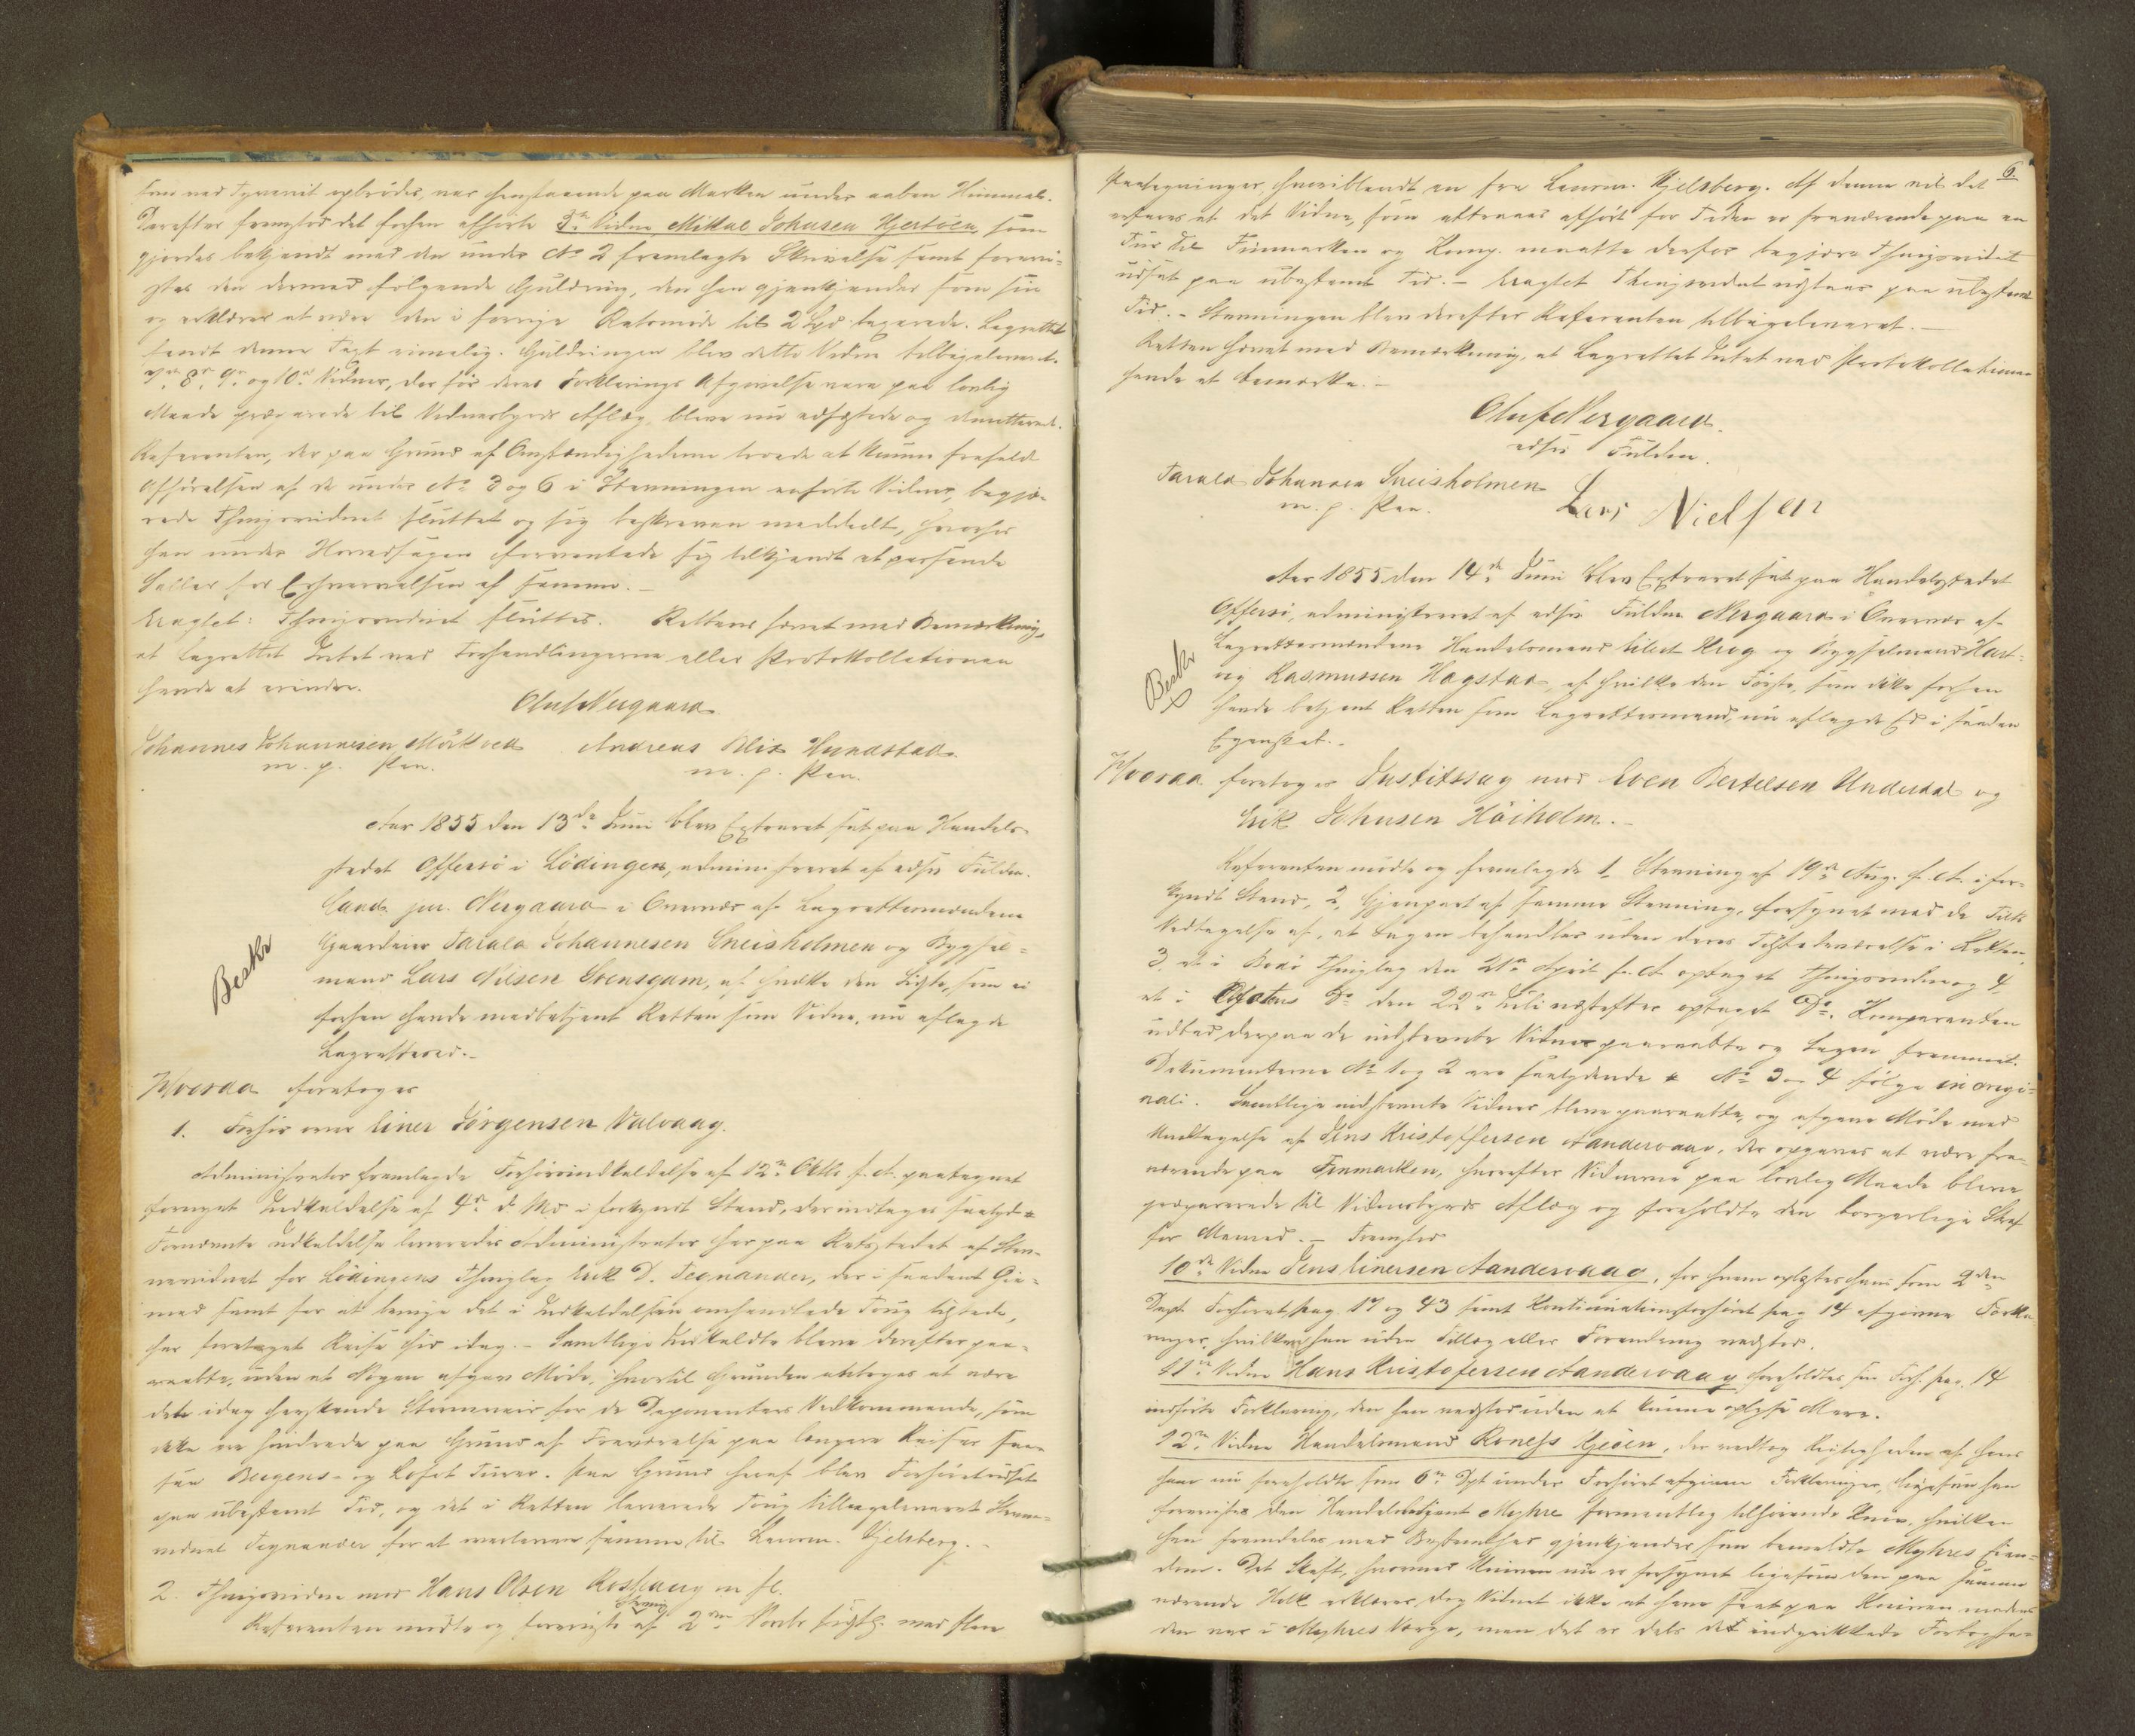 som ved Tyveriet opbrödes, var henstaaende paa Marken under aaben Himmel.
Derefter fremstod det forhen afhörte 3die Vidne, Mikkal Johnsen Hjertöen, som
gjordes bekjendt med den under No 2 fremlagte Skrivelse samt forevi-
stes den dermed fölgende Guldring, den han gjenkjender som sin
og erklærer at være den i forrige Retsmöde til 2 Spd. taxerede. Lagrettet
fandt denne Taxt rimelig. Guldringen blev dette Vidne tilbageleveret.
7de, 8de, 9de og 10de Vidner, der för deres Forklarings Afgivelse vare paa lovlig
Maade præparerede til Vidnesbyrds Aflæg, bleve nu edfæstede og dimitterede.
Referenten, der paa Grund af Omstændighederne troede at kunne frafalde
Afhörelsen af de under No 3 og 6 i Stevningen anförte Vidner, begjæ-
rede Thingsvidnet sluttet og sig beskreven meddeelt, hvorhos
han under Hovedsagen forventede sig tilkjendt et passende
Salær for Erhvervelsen af samme. –
Eragtet: Thingsvidnet sluttes. Retten hævet med Bemærkning,
at Lagrettet Intet ved Forhandlingerne eller Protokollationen
havde at erindre.
Oluf Nergaard
Johannes Johannesen Mörkved Andreas Blix Hundstad
m. p. Pen. m. p. Pen.
Aar 1855 den 13de Juni blev Extraret sat paa Handels-
stedet Offersö i Lödingen, administreret af edsv. Fuldm.
Cand. jur. Nergaard i Overvær af Lagrettesmændene
Gaardeier Tarald Johannesen Sneisholmen og Bygsel-
mand Lars Nilsen Svensgam, af hvilke den Sidste, som ei
forhen havde medbetjent Retten som Vidne, nu aflagde
Lagrettesed. –
Beskr
Hvorda foretoges
1. Forhör over Einer Jörgensen Valvaag.
Administrator fremlagde Forhörsindkaldelse af 12te Oktbr f. A. paategnet
fornyet Indkaldelse af 4de d. Md. i forkyndt Stand, der indtages saalyd.
Fornævnte Indkaldelse leveredes Administrator her paa Retsstedet af Stev-
nevidnet for Lödingens Thinglag Erik D. Tegnander, der i saadant Öie-
med samt for at bringe det i Indkaldelsen omhandlede Toug tilstede,
har foretaget Reise hid idag. – Samtlige Indkaldte bleve derefter paa-
raabte, uden at Nogen afgav Möde, hvortil Grunden antoges at være
dels idag herskende Stormveir for de Deponenters Vedkommende, som
ikke ere hindrede paa Grund af Fraværelse paa længere Reiser saa-
som Bergens- og Lofot Turer. Paa Grund heraf blev Forhöret udsat
paa ubestemt Tid, og det i Retten leverede Toug tilbageleveret Stevne-
vidnet Tegnander for at overlevere samme til Lensm. Kjelsberg. –
2. Thingsvidne mod Hans Olsen Roshaug m. fl.
Referenten mödte og foreviste Stevning af 2den Novbr sidstl. med flere
6.
Paategninger, hvoriblandt en fra Lensm. Kjelsberg. Af denne vil det
erfares at det Vidne, som attraaes afhört for Tiden er fraværende paa en
Tur til Finmarken og Komp. maatte derfor begjære Thingsvidnet
udsat paa ubestemt Tid. – Eragtet Thingsvidnet udstaar paa ubestemt
Tid. – Stevningen blev derefter Referenten tilbageleveret. –
Retten hævet med Bemærkning, at Lagrettet Intet ved Protokollationen
havde at bemærke. –
Oluf Nergaard
edsv. Fuldm.
Tarald Johansen Sneisholmen Lars Nielsen
m. p. Pen.
Aar 1855 den 14de Juni blev Extraret sat paa Handelsstedet
Offersö, administreret af edsv. Fuldm. Nergaard i Overvær af
Lagrettesmændene Handelsmand Eilert Krog og Bygselmand Hart-
vig Rasmussen Hagstad, af hvilke den Förste, som ikke forhen
havde betjent Retten som Lagrettesmand, nu aflagde Ed i saadan
Egenskab. –
Beskr
Hvorda foretoges Justitssag mod Even Bertelsen Underdal og
Erik Johnsen Höiholm. –
Referenten mödte og fremlagde 1, Stevning af 19de Aug. f. A. i for-
kyndt Stand, 2, Gjenpart af samme Stevning, forsynet med de Tilt.
Vedtagelse af, at Sagen behandles uden deres Tilstedeværelse i Retten,
3, et i Bodö Thinglag den 21de April f. A. optaget Thingsvidne og 4,
et i Ofotens Do den 22de Juli næstefter optaget Do. Komparenten
udbad derpaa de indstevnte Vidner paaraabte og Sagen fremmet.
Dokumenterne No 1 og 2 ere saalydende No 3 og 4 fölge in origi-
nali. Samtlige indstevnte Vidner bleve paaraabte, og afgave Möde med
Undtagelse af Jens Kristoffersen Aandervaag, der opgaves at være fra-
værende paa Finmarken, hvorefter Vidnerne paa lovlig Maade bleve
præparerede til Vidnesbyrds Aflæg og foreholdte den borgerlige Straf
for Mened. – Fremstod
10de Vidne Jens Einersen Aandervaag, for hvem oplæstes hans som 2den
Dept. Forhöret pag. 17 og 43 samt Kontinuationsforhöret pag 14 afgivne Forkla-
ringer, hvilke han uden Tillæg eller Forandring vedstod.
11te Vidne Hans Kristofersen Aandervaag foreholdtes sin Forh. pag. 14
indförte Forklaring, den han vedstod uden at kunne oplyse Mere.
12te Vidne Handelsmand Roness Kjeöen, der vedtog Rigtigheden af hans
ham nu foreholdte som 6te Dpt under Forhöret afgivne Forklaringer, ligesom han
forevistes den Handelsbetjent Myhre formentlig tilhörende Kniv, hvilken
han fremdeles med Bestemthed gjenkjender som bemeldte Myhres Eien-
dom. Det Skaft, hvormed Kniven nu er forsynet ligesom den paa samme
værende Holk erklærer dog Vidnet ikke at have seet paa Kniven medens
den var i Myhres Værge, men det er dels det indprikkede Forbogsta-